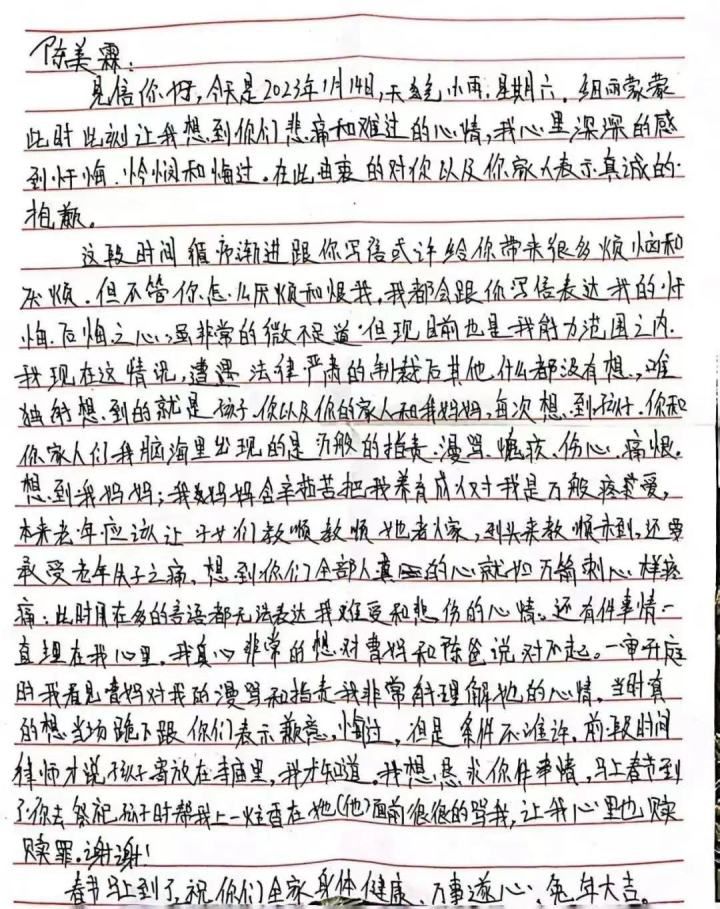 陈美霖:
见信你好,今天是2023年1月14日,天气小雨.星期六.细雨蒙蒙
此时此刻让我想到你们悲痛和难过的心情,我心里深深的感
到忏悔.怜悯和悔过.在此由衷的对你以及你家人表示真诚的
抱歉。
这段时间循序渐进跟你写信或许给你带来很多烦恼和
厌烦.但不管你怎么厌烦和恨我,我都会跟你写信表达我的忏
悔.后悔之心;虽非常的微不足道,但现目前也是我能力范围之内.
我现在这情况,遭遇法律严肃的制裁后其他什么都没有想,唯
独能想到的就是孩子.你以及你的家人和我妈妈,每次想到孩子.你和
你家人们我脑海里出现的是万般的指责、漫骂、愧疚、伤心、痛恨。
想到我妈妈;我妈妈含辛茹苦把我养育成人对我是万般疼爱,
本来老年应该让子女们教顺教顺她老人家,到头来教顺未到,还要
承受老年失子之痛.想到你们全部人真的心就如万箭刺心样疼
痛;此时用在多的言语都无法表达我难受和悲伤的心情。还有件事情一
直埋在我心里.我真心非常的想对曹妈和陈爸说对不起。一审开庭
时我看见曹妈对我的漫骂和指责我非常能理解她的心情,当时真
的想当场跪下跟你们表示歉意,悔过,但是条件不准许.前段时间
律师才说孩子寄放在寺庙里,我才知道.我想恳求你件事情.马上春节到
了你去祭祀孩子时帮我上一炷香在她(他)面前很很的骂我,让我心里也赎
赎罪.谢谢!
春节马上到了,祝你们全家身体健康、万事遂心、兔年大吉。